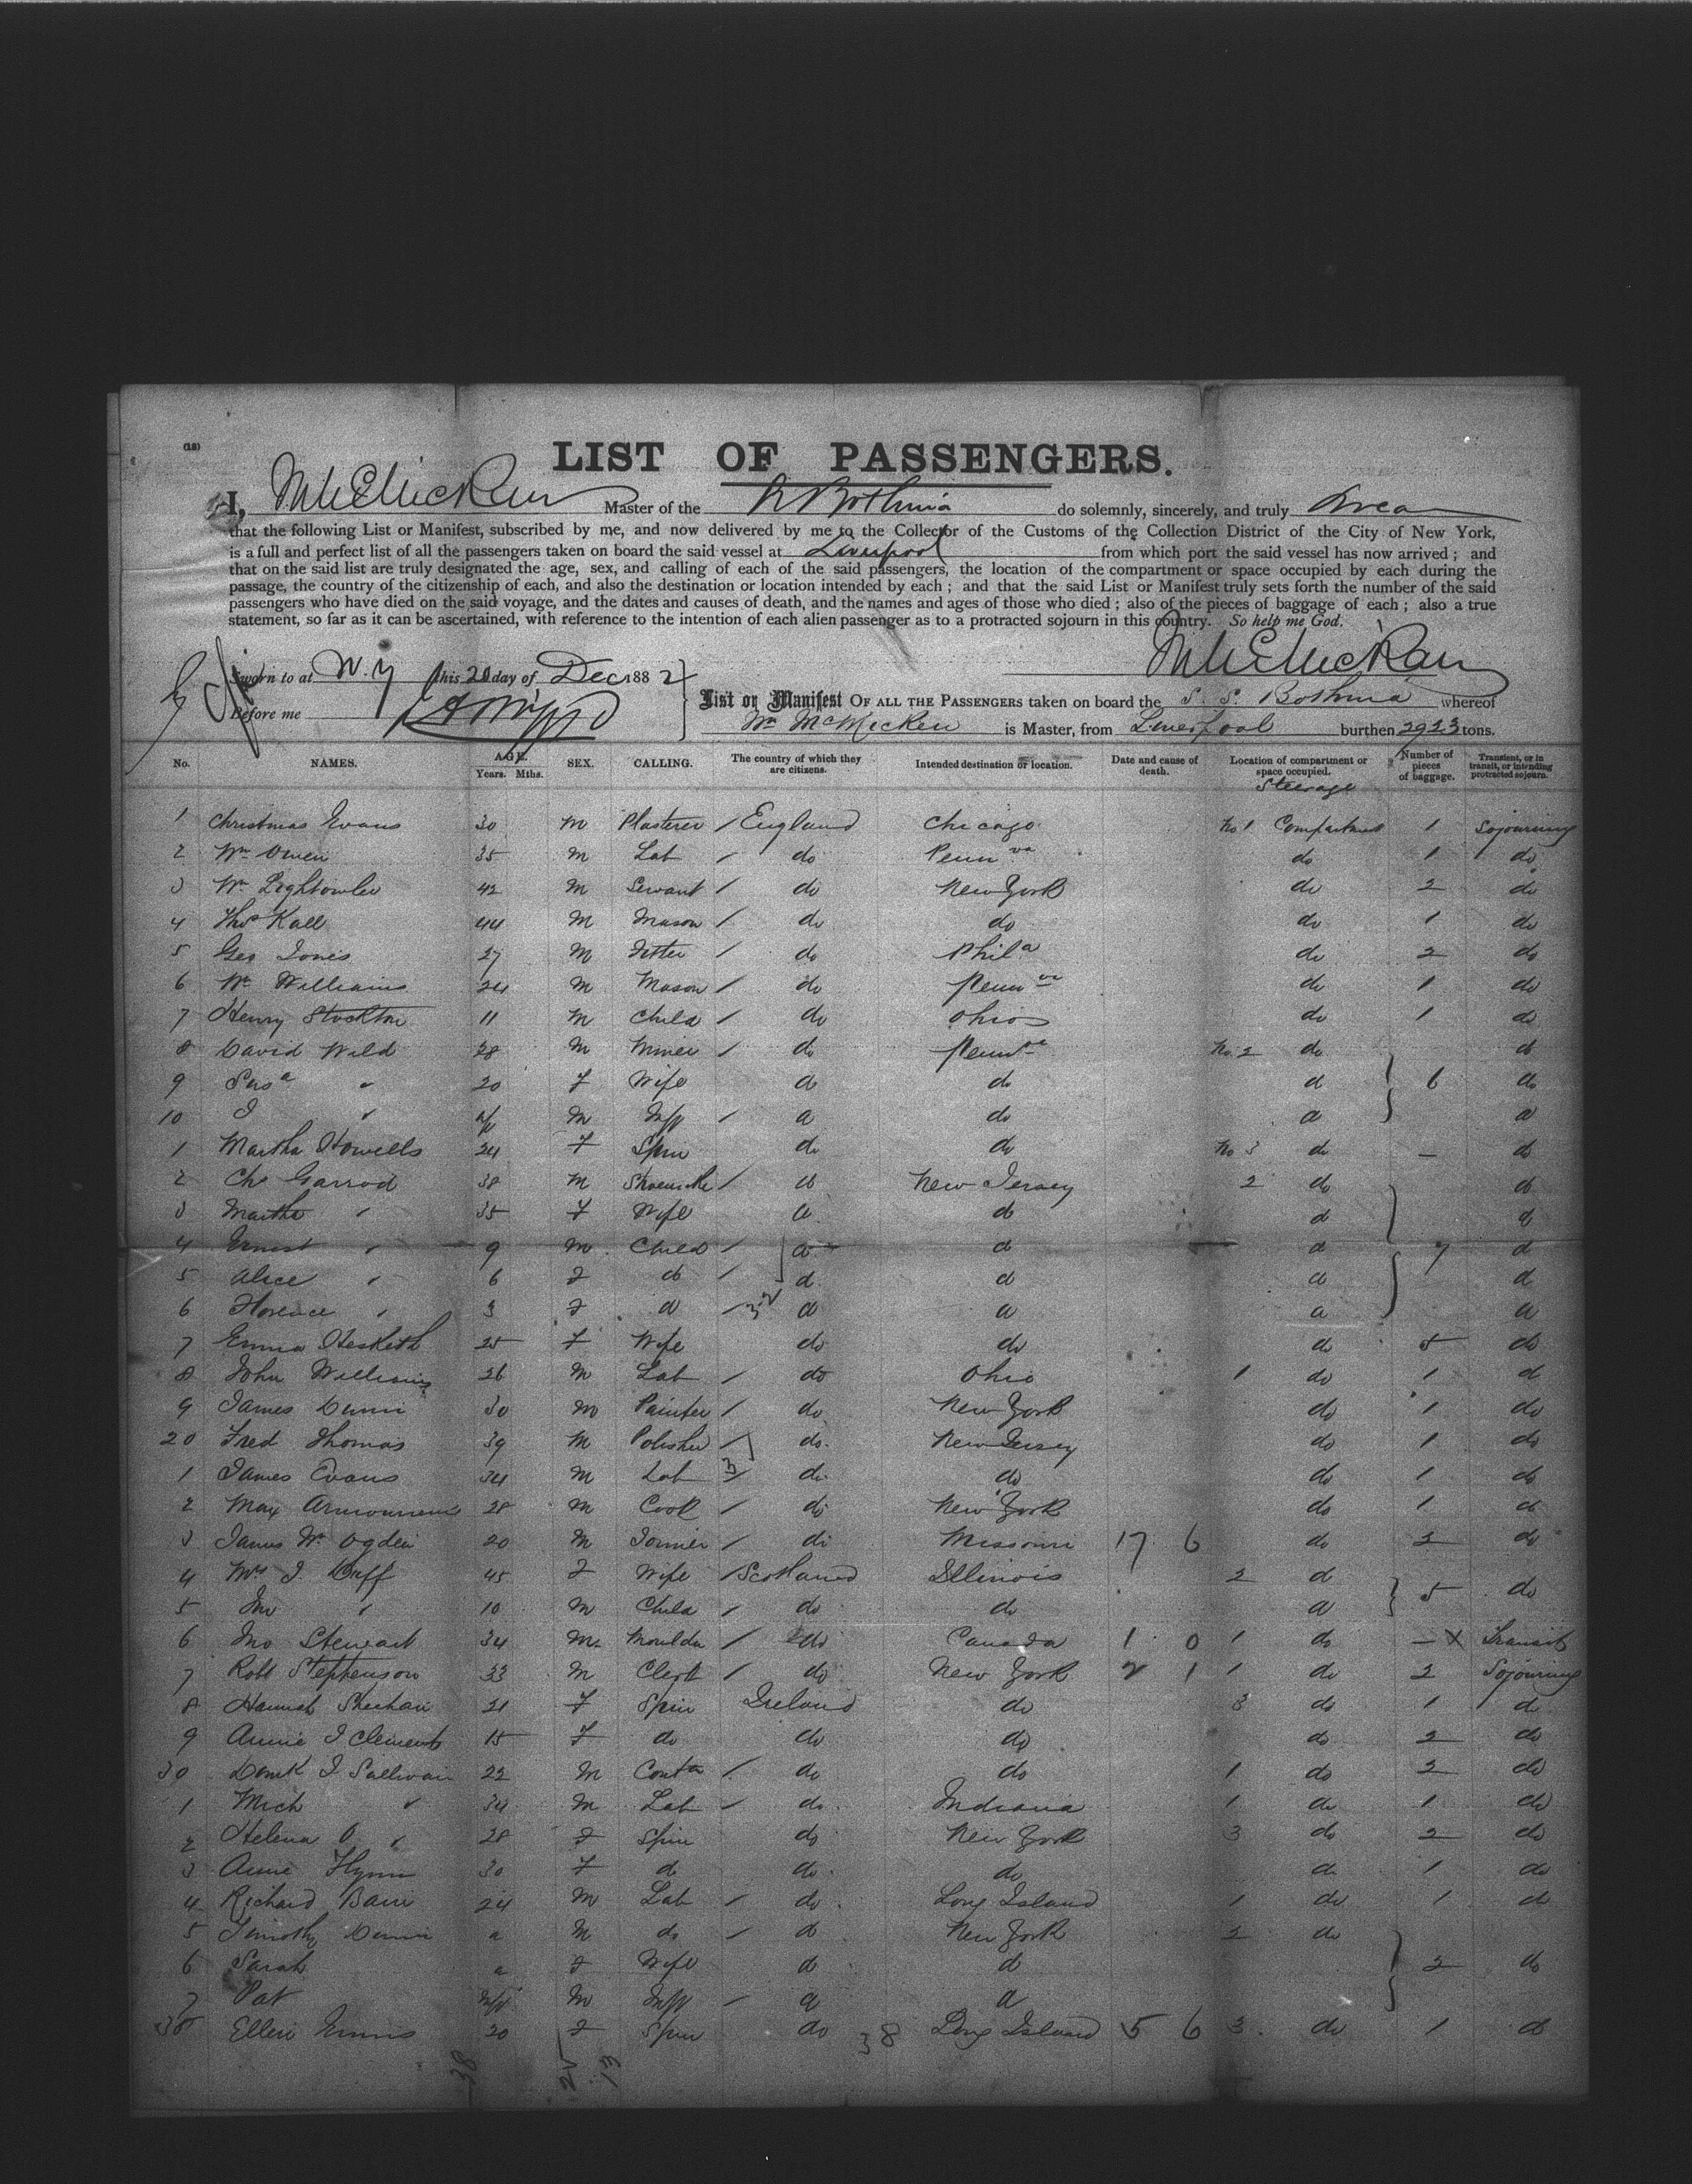 (18)
LIST OF PASSENGERS.
I, Master of the Bothnia do solemnly, sincerely, and truly Swear
that the following List or Manifest, subscribed by me, and now delivered by me to the Collector of the Customs of the Collection District of the City of New York,
is a full and perfect list of all the passengers taken on board the said vessel at Liverpool from which port the said vessel has now arrived ; and
that on the said list are truly designated the age, sex, and calling of each of the said passengers, the location of the compartment or space occupied by each during the
passage, the country of the citizenship of each, and also the destination or location intended by each ; and that the said List or Manifest truly sets forth the number of the said
passengers who have died on the said voyage, and the dates and causes of death, and the names and ages of those who died ; also of the pieces of baggage of each ; also a true
statement, so far as it can be ascertained, with reference to the intention of each alien passenger as to a protracted sojourn in this country. So help me God.
Sworn to at N.Y this 20 day of Dec 1882
Before me
List or Manifest OF ALL THE PASSENGERS taken on board the S. S. Bothnia whereof
Wm McMicken is Master, from Liverpool burthen 2923 tons.
No. NAMES. AGE. Years. Mths. SEX. CALLING. The country of which they are citizens. Intended destination or location. Date and cause of death. Location of compartment or space occupied. Number of pieces of baggage. Transient, or in transit, or intending protracted sojourn.
Steerage
1 Christmas Evans 30 M Plasterer / England Chicago No 1 Compartment 1 Sojourning
2 Wm Owen 35 M Lab / do Penn va do 1 do
3 Wm Lightowler 42 M Servant / do New York do 2 do
4 Thos Kall 44 M Mason / do do do 1 do
5 Geo Jones 27 M Fitter / do Phila do 2 do
6 Wm Williams 24 M Mason / do Penn va do 1 do
7 Henry Stockton 11 M Child / do Ohio do 1 do
8 David Wild 28 M Miner / do Penn va No. 2 do do
9 " 20 F Wife do do do 6 do
10 " M Inf / do do do do
1 Martha Howells 24 F Spin do do No 3 do — do
2 Chs Garrod 38 M / do New Jersey 2 do do
3 Martha " 35 F Wife do do do do
4 Ernest " 9 M Child / do do do 7 do
5 Alice " 6 F do / do do do do
6 Florence " 3 F do / 32 do do do do
7 Emma Hesketh 25 F Wife do do do 5 do
8 John Williams 26 M Lab / do Ohio 1 do 1 do
9 James Dunn 30 M Painter / do New York do 1 do
20 Fred Thomas 39 M Polisher / do New Jersey do 1 do
1 James Evans 34 M Lab / 3 do do do 1 do
2 Max 28 M Cook / do New York do 1 do
3 James Wm Ogden 20 M Joiner / do Missouri 17 6 do 2 do
4 Mrs J. Duff 45 F Wife / Scotland Illinois 2 do 5 do
5 Jno " 10 M Child / do do do
6 Jno Stewart 34 M Moulder / do Canada 1 0 1 do — X Transit
7 Robt Stephenson 33 M Clerk / do New York 2 1 1 do 2 Sojourning
8 Hannah Sheehan 21 F Spin Ireland do 3 do 1 do
9 Annie J Clements 15 F do do do do 2 do
30 J Sullivan 22 M / do do 1 do 2 do
1 Mich " 34 M Lab / do Indiana 1 do 1 do
2 Helena O " 28 F Spin do New York 3 do 2 do
3 Annie Flynn 30 F do do do do 1 do
4 Richard 24 M Lab / do Long Island 1 do 1 do
5 Timothy Dunn a M do / do New York 2 do
6 Sarah a F Wife do do 2 do
7 Pat Inf M Inf / do do
38 Ellen Ennis 20 F Spin do 38 Long Island 5 6 3 do 1 do
38 25 13